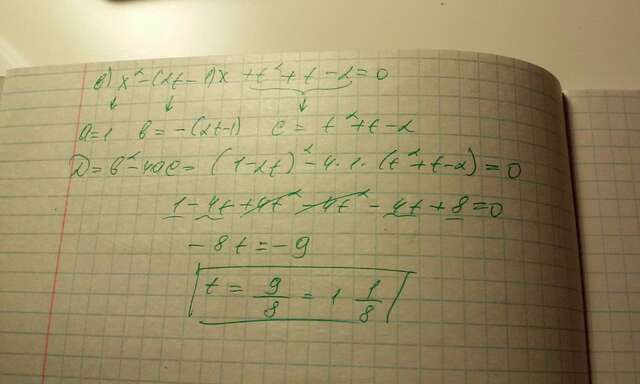 в) x² - (2t - 1)x + t² + t - 2 = 0
↓ ↓ ↓
a = 1 b = -(2t-1) c = t² + t - 2
D = b² - 4ac = (1 - 2t)² - 4 · 1 · (t² + t - 2) = 0
1 - 4t + 4t² - 4t² - 4t + 8 = 0
- 8t = - 9
t = 9/8 = 1 1/8